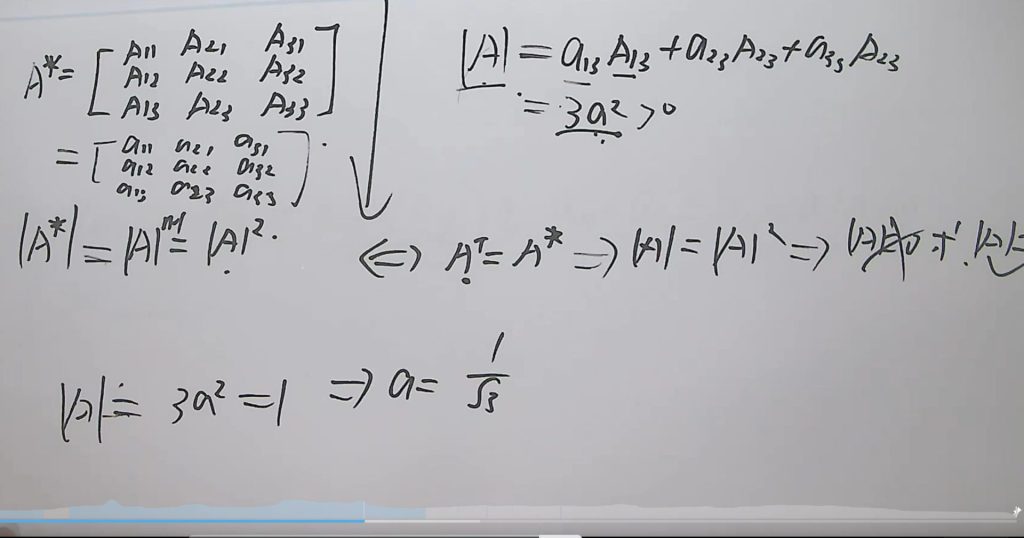 A* = [ A11 A21 A31
A12 A22 A32
A13 A23 A33 ]
= [ a11 a21 a31
a12 a22 a32
a13 a23 a33 ]
|A*| = |A|ⁿ⁻¹ = |A|².
|A| = a13 A13 + a23 A23 + a33 A23
= 3a² > 0
⇔ Aᵀ = A* ⇒ |A| = |A|² ⇒ |A|=0 |A|=
|A| = 3a² = 1 ⇒ a = 1/√3